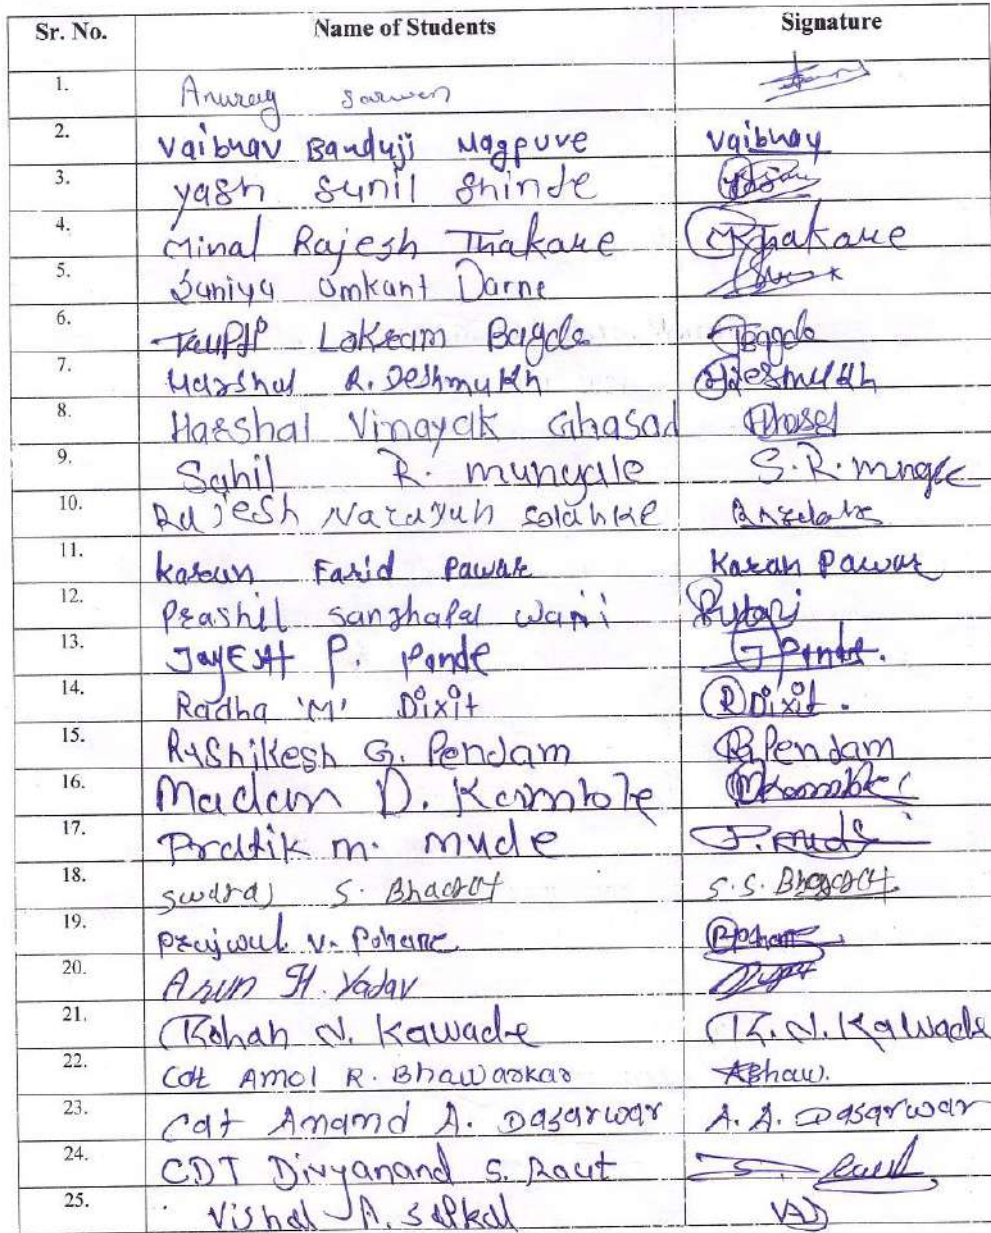 Sr. No. Name of Students Signature
1. Anurag
2. Vaibhav Banduji Magpure Vaibhav
3. Yash Sunil Shinde
4. Minal Rajesh Thakare MRThakare
5. Saniya Umkant Darne
6. Lakram Bagde TBagde
7. Harshal R. Deshmukh HDeshmukh
8. Harshal Vinayak Ghasad
9. Sahil R. mungale S. R. mngle
10. Rajesh Narayan Solanke
11. Karan Farid Pawar Karan Pawar
12. Prashil Sanghapal Wani
13. Jayesh P. Pande J Pande.
14. Radha 'M' Dixit R Dixit.
15. Rushikesh G. Pendam R Pendam
16. Madan D. Kamble
17. Pratik m. mude P. mude
18. Swaraj S. Bhagat S. S. Bhagat
19. Prajwal V. Pohane
20. Arun H. Yadav
21. Rohan N. Kawade R. N. Kawade
22. Cdt Amol R. Bhawarkar ABhaw.
23. Cdt Anand A. Dasarwar A. A. Dasarwar
24. CDT Divyanand S. Raut S. Raut
25. Vishal A. Sapkal